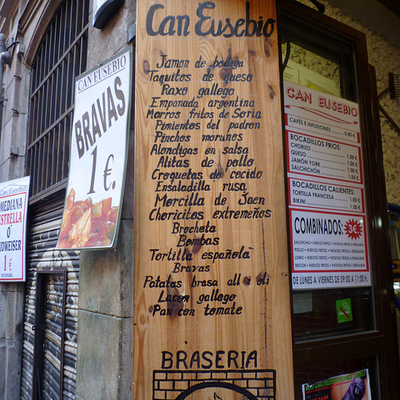 CAN EUSEBIO
BRAVAS
1€.
MEDIANA
ESTRELLA
Ó
BUDWEISER
1 €
Can Eusebio
Jamon de bodega
Taquitos de queso
Raxo gallego
Empanada argentina
Morros fritos de Soria
Pimientos del padron
Pinchos morunos
Alondigas en salsa
Alitas de pollo
Croquetas de cocido
Ensaladilla rusa
Morcilla de Jaen
Choricitos extremeños
Brocheta
Bombas
Tortilla española
Bravas
Patatas brasa all i oli
Lacon gallego
Pan con tomate
BRASERIA
CAN EUSEBIO
CAFÉS e INFUSIONES
BOCADILLOS FRIOS
CHORIZO
QUESO
JAMON YORK
SALCHICHÓN
BOCADILLOS CALIENTES
TORTILLA FRANCESA
BIKINI
COMBINADOS
DE LUNES A VIERNES DE 09:00 A 11:00H